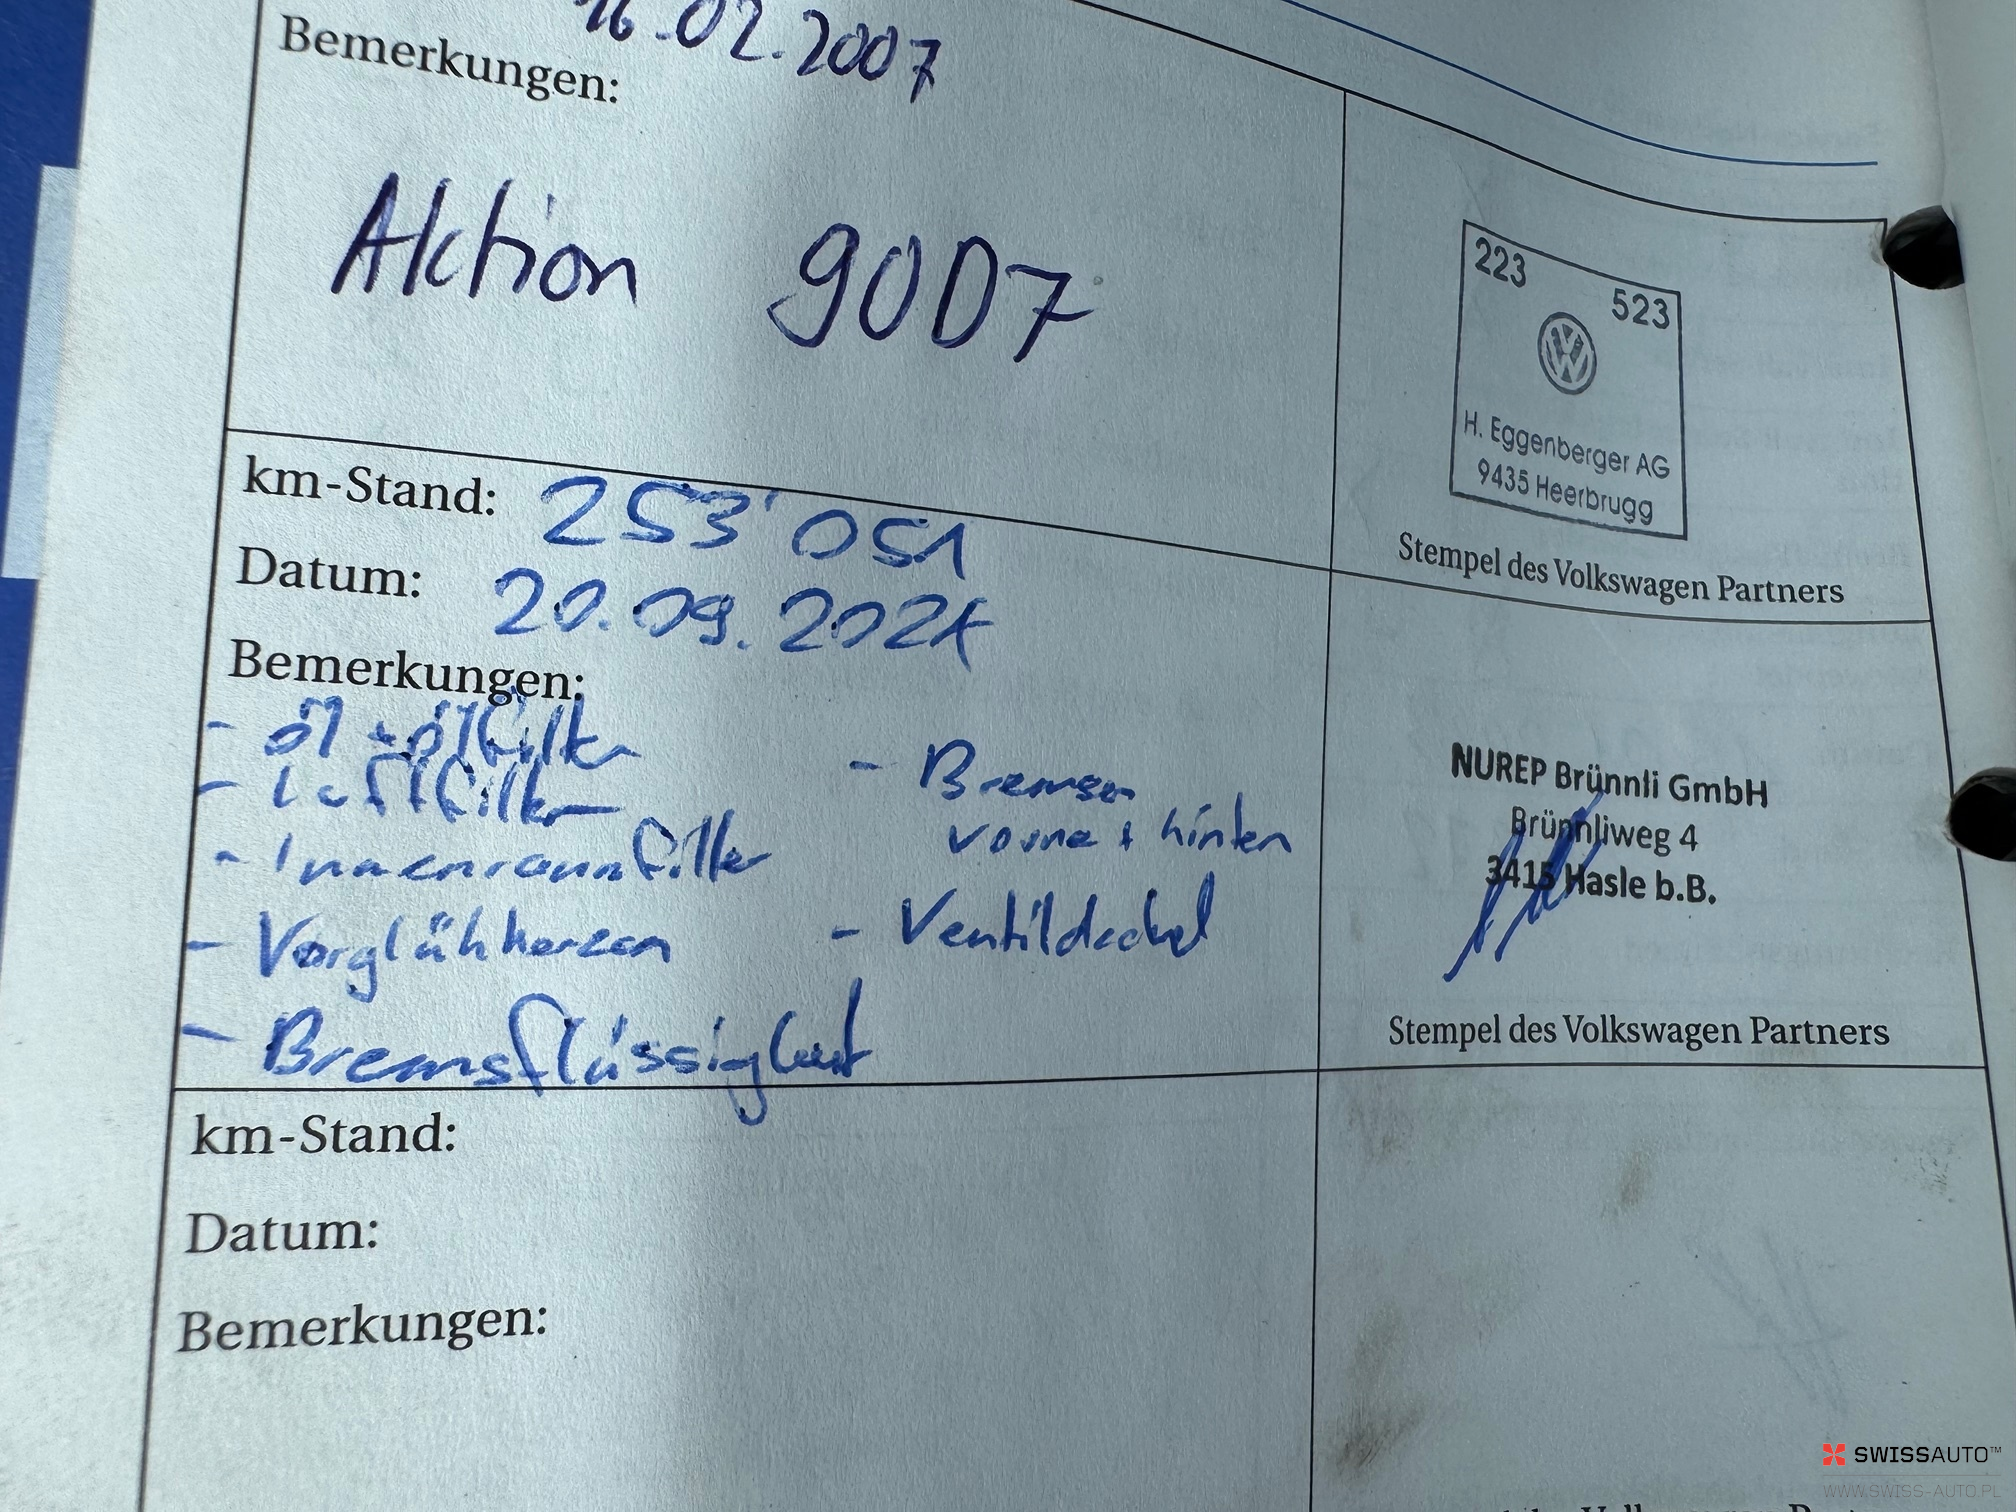 16.02.2007
Bemerkungen:
Aktion 90D7
223
523
H. Eggenberger AG
9435 Heerbrugg
Stempel des Volkswagen Partners
km-Stand: 253'051
Datum: 20.09.2024
Bemerkungen:
- Öl + Ölfilter
- Luftfilter
- Innenraumfilter
- Vorglühkerzen
- Bremsflüssigkeit
- Bremsen
vorne + hinten
- Ventildeckel
NUREP Brünnli GmbH
Brünnliweg 4
3415 Hasle b.B.
Stempel des Volkswagen Partners
km-Stand:
Datum:
Bemerkungen:
SWISSAUTO™
WWW.SWISS-AUTO.PL